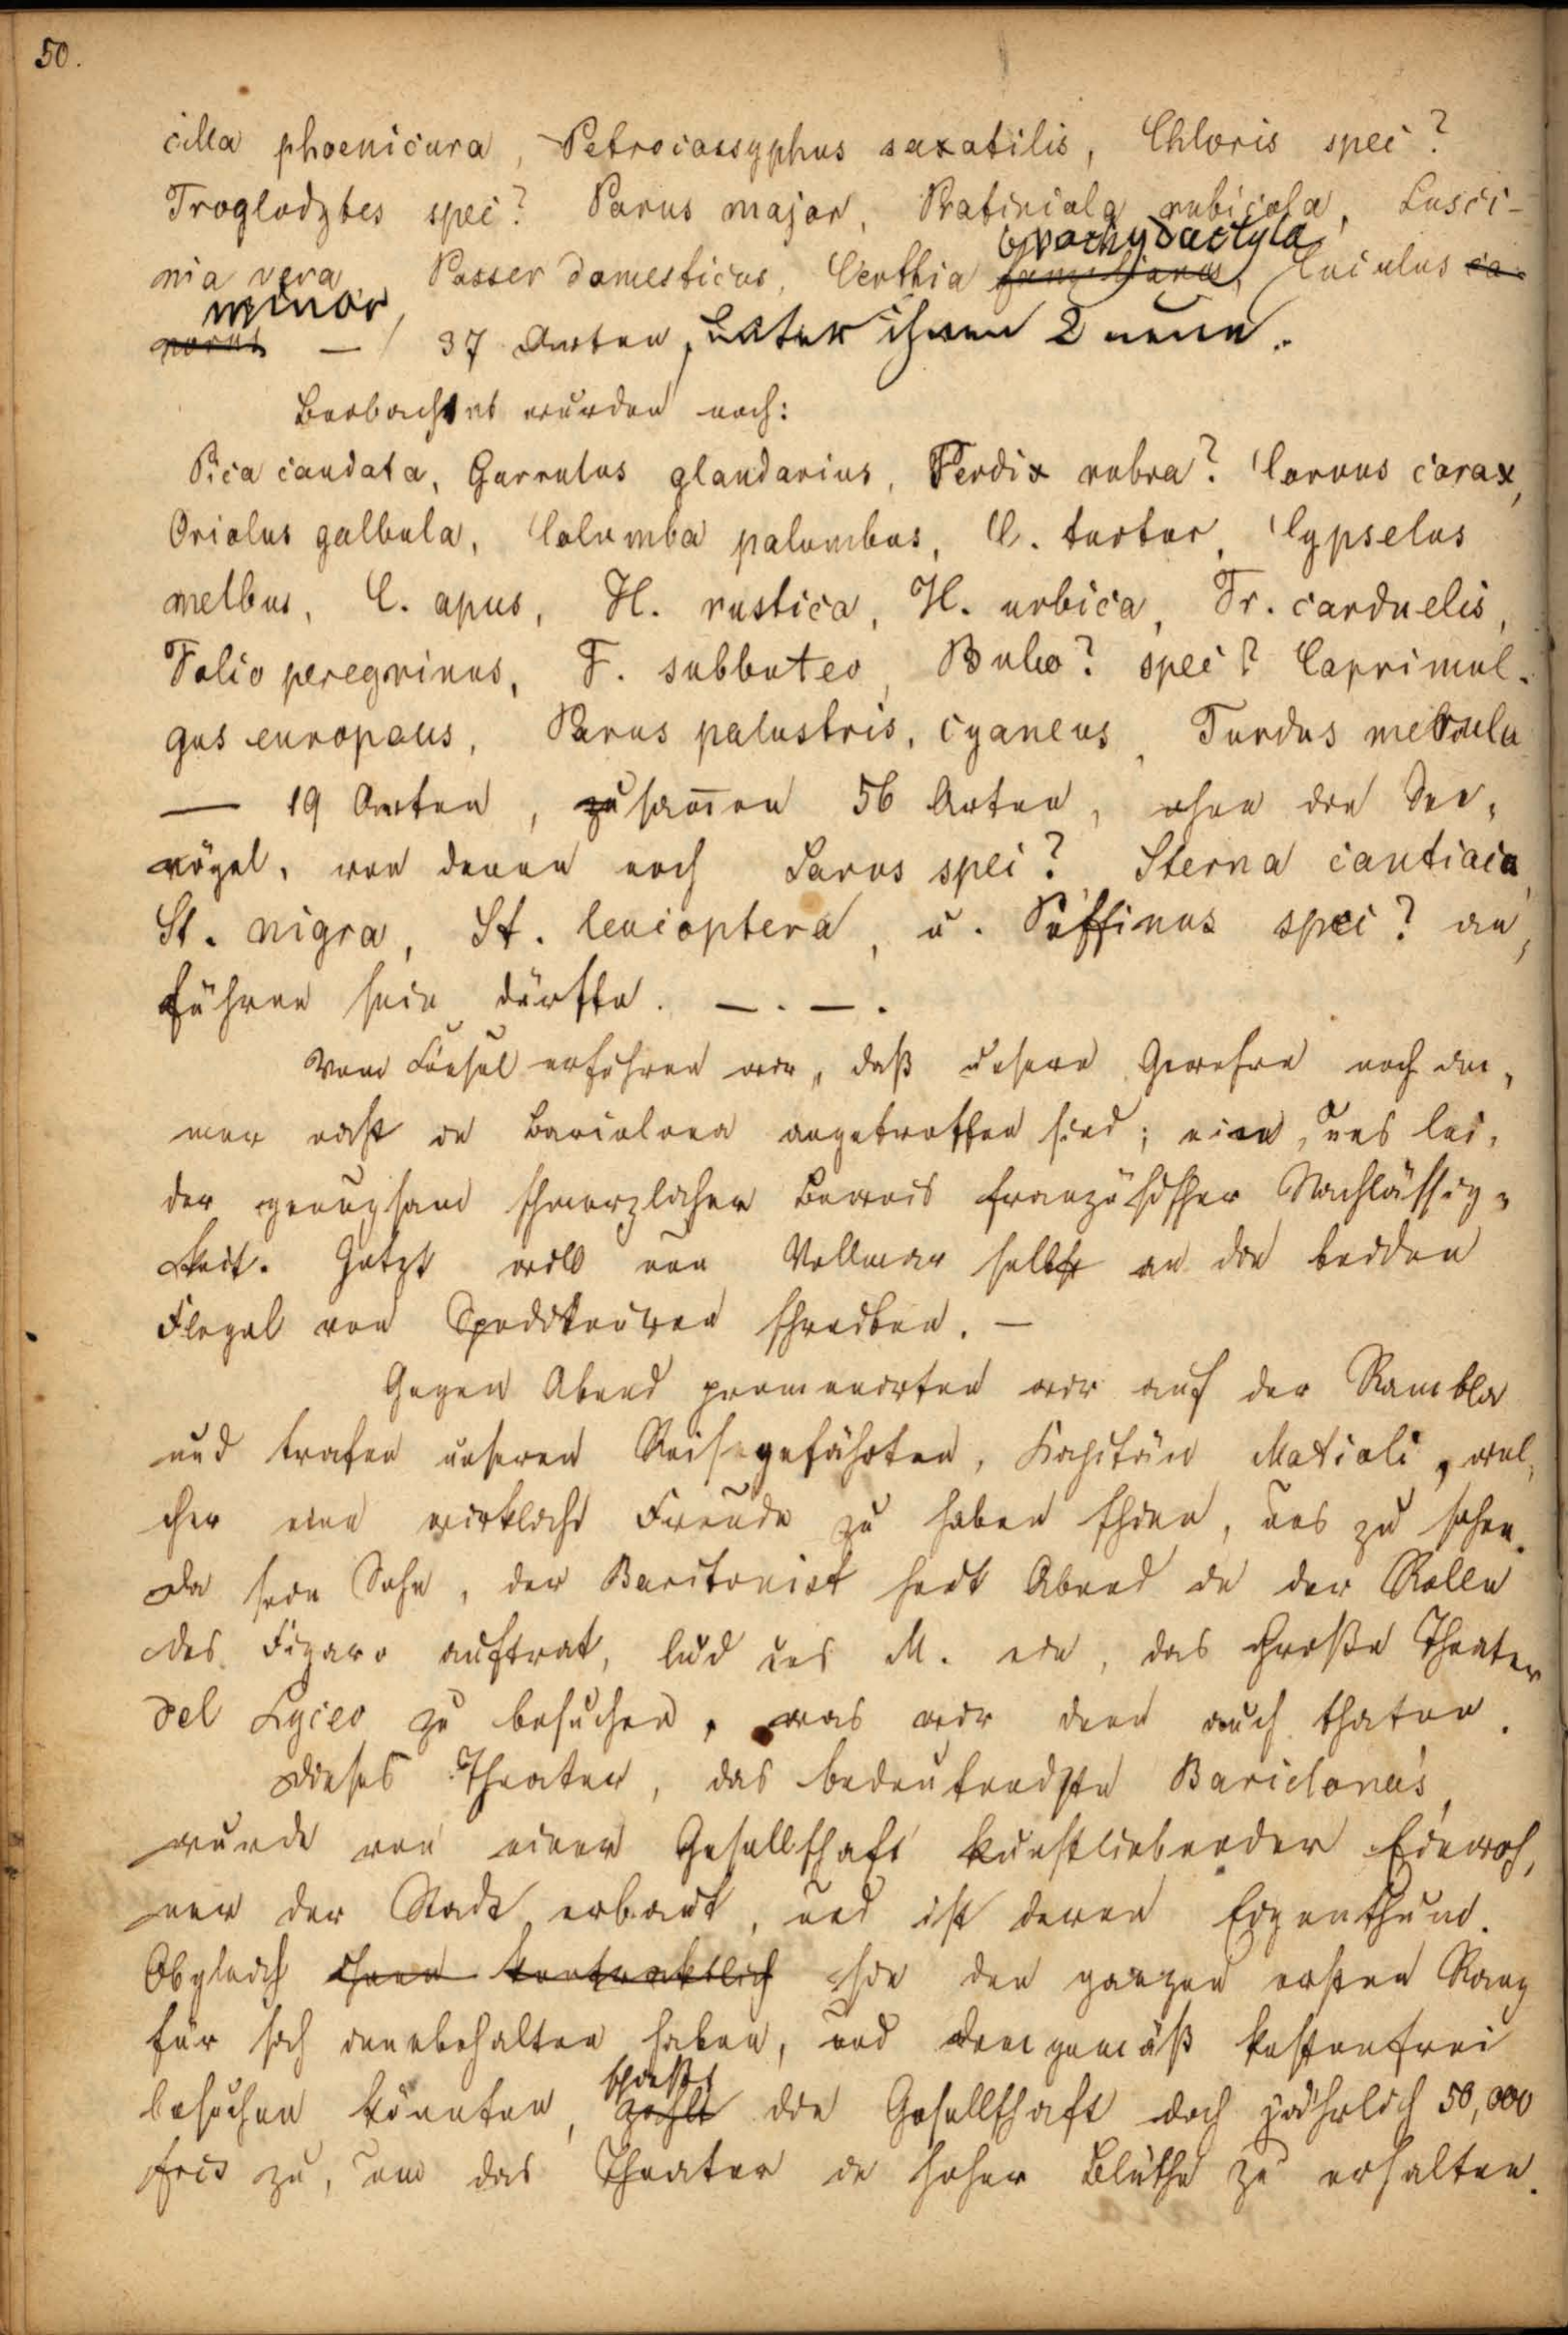 50.
cilla phoenicura, Petrocossyphus saxatilis, Chloris spec?
Troglodytes spec? Parus major, Pratincola rubicola, Lusci-
brachydactyla
nia vera Passer domesticus, Certhia familiaris, Cuculus ca-
minor
norus — / 37 Arten, unter ihnen 2 neue.
Beobachtet wurden noch:
Pica caudata, Garrulus glandarius, Perdix rubra? Corvus corax,
Oriolus galbula, Columba palumbus, C. turtur, Cypselus
melbus, C. apus, H. rustica, H. urbica, Fr. carduelis,
Falco peregrinus, F. subbuteo, Bubo? spec? Caprimul-
gus europaeus, Parus palustris, cyaneus, Turdus merula
— 19 Arten, zusam̄en 56 Arten, ohne die See-
vögel, von denen noch Larus spec? Sterna cantiaca,
St. nigra, St. leucoptera, u. Puffinus spec? an-
führen sein dürfte. —.—.
Vom Consul erfuhren wir, daß unsere Gewehre noch im-
mer nicht in Barcelona angetroffen sind; ein, uns lei-
der genugsam schmerzlicher Beweis französischer Nachlässig-
keit. Jetzt will nun Vollmar selbst an die beiden
Flegel von Spediteuren schreiben. —
Gegen Abend promenirten wir auf der Rambla
und trafen unseren Reisegefährten, Kapitän Matioli, wel-
cher eine wirkliche Freude zu haben schien, uns zu sehen.
Da sein Sohn, der Baritonist heut Abend in der Rolle
des Figaro auftrat, lud uns M. ein, das Große Theater
del Lyceo zu besuchen, was wir denn auch thaten.
Dieses Theater, das bedeutendste Barcelona's,
wurde von einer Gesellschaft kunstliebender Einwoh-
ner der Stadt erbaut, und ist deren Eigenthum.
Obgleich ihnen kontraktlich sie den ganzen ersten Rang
für sich innebehalten haben, und demgemäß kostenfrei
schießt
besuchen könnten, zahlt die Gesellschaft doch jährlich 50,000
frcs zu, um das Theater in hoher Blüthe zu erhalten.